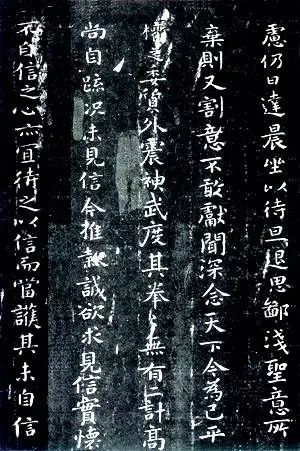 慮仍日達晨坐以待旦退思鄙淺聖意所
棄則又割意不敢獻聞深念天下今為已平
權之委質外震神武度其拳々無有二計高
尚自疏況未見信今推款誠欲求見信實懷
不自信之心亦宜待之以信而當護其未自信